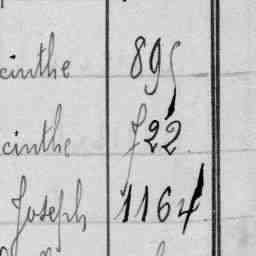 cinthe 895
cinthe 722
Joseph 1164